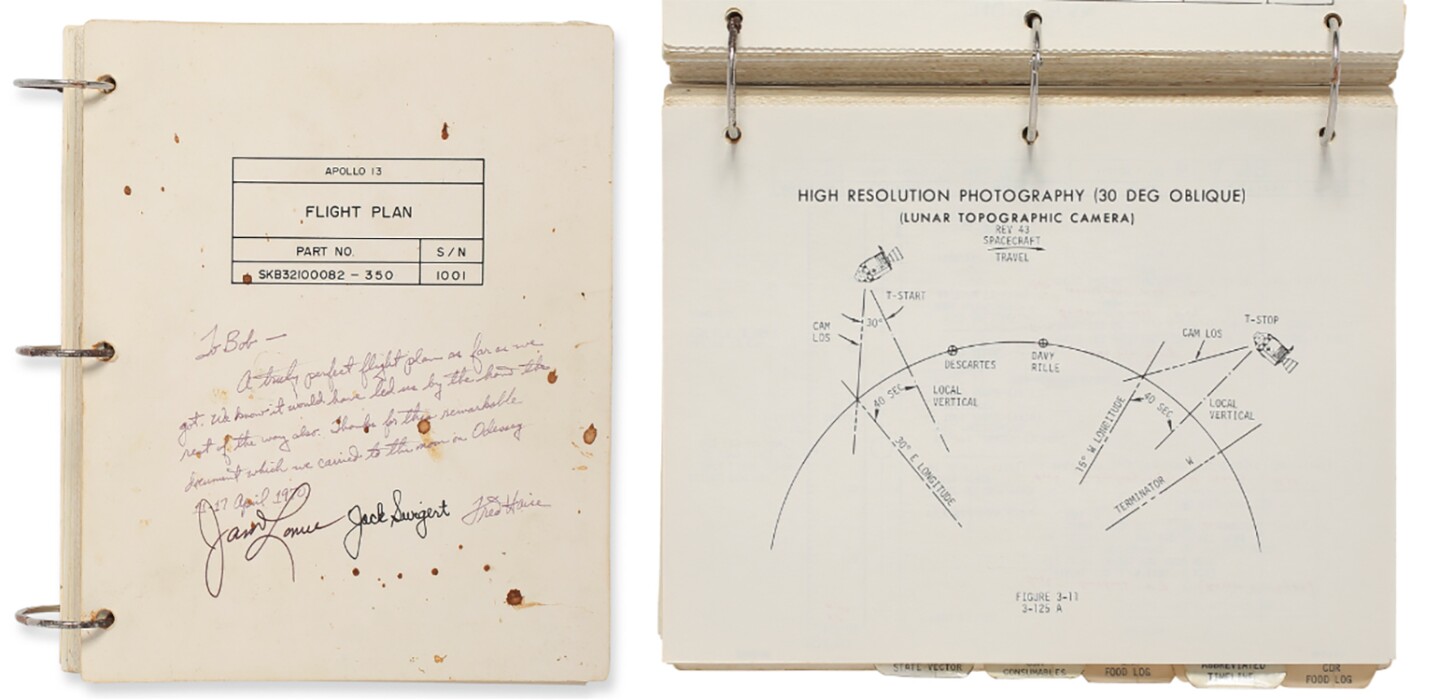 APOLLO 13
FLIGHT PLAN
PART NO. S/N
SKB32100082 - 350 1001
To Bob —
A truly perfect flight plan as far as we
got. We know it would have led us by the hand the
rest of the way also. Thanks for this remarkable
document which we carried to the moon in Odessey
11-17 April 1970
James Lovell Jack Swigert Fred Haise
HIGH RESOLUTION PHOTOGRAPHY (30 DEG OBLIQUE)
(LUNAR TOPOGRAPHIC CAMERA)
REV 43
SPACECRAFT
TRAVEL
T-START
30°
CAM
LOS
T-STOP
CAM LOS
DESCARTES
DAVY
RILLE
40 SEC
LOCAL
VERTICAL
40 SEC
LOCAL
VERTICAL
30° E LONGITUDE
15° W LONGITUDE
TERMINATOR W
FIGURE 3-11
3-125 A
STATE VECTOR
CONSUMABLES
FOOD LOG
ABBREVIATED
TIMELINE
CDR
FOOD LOG